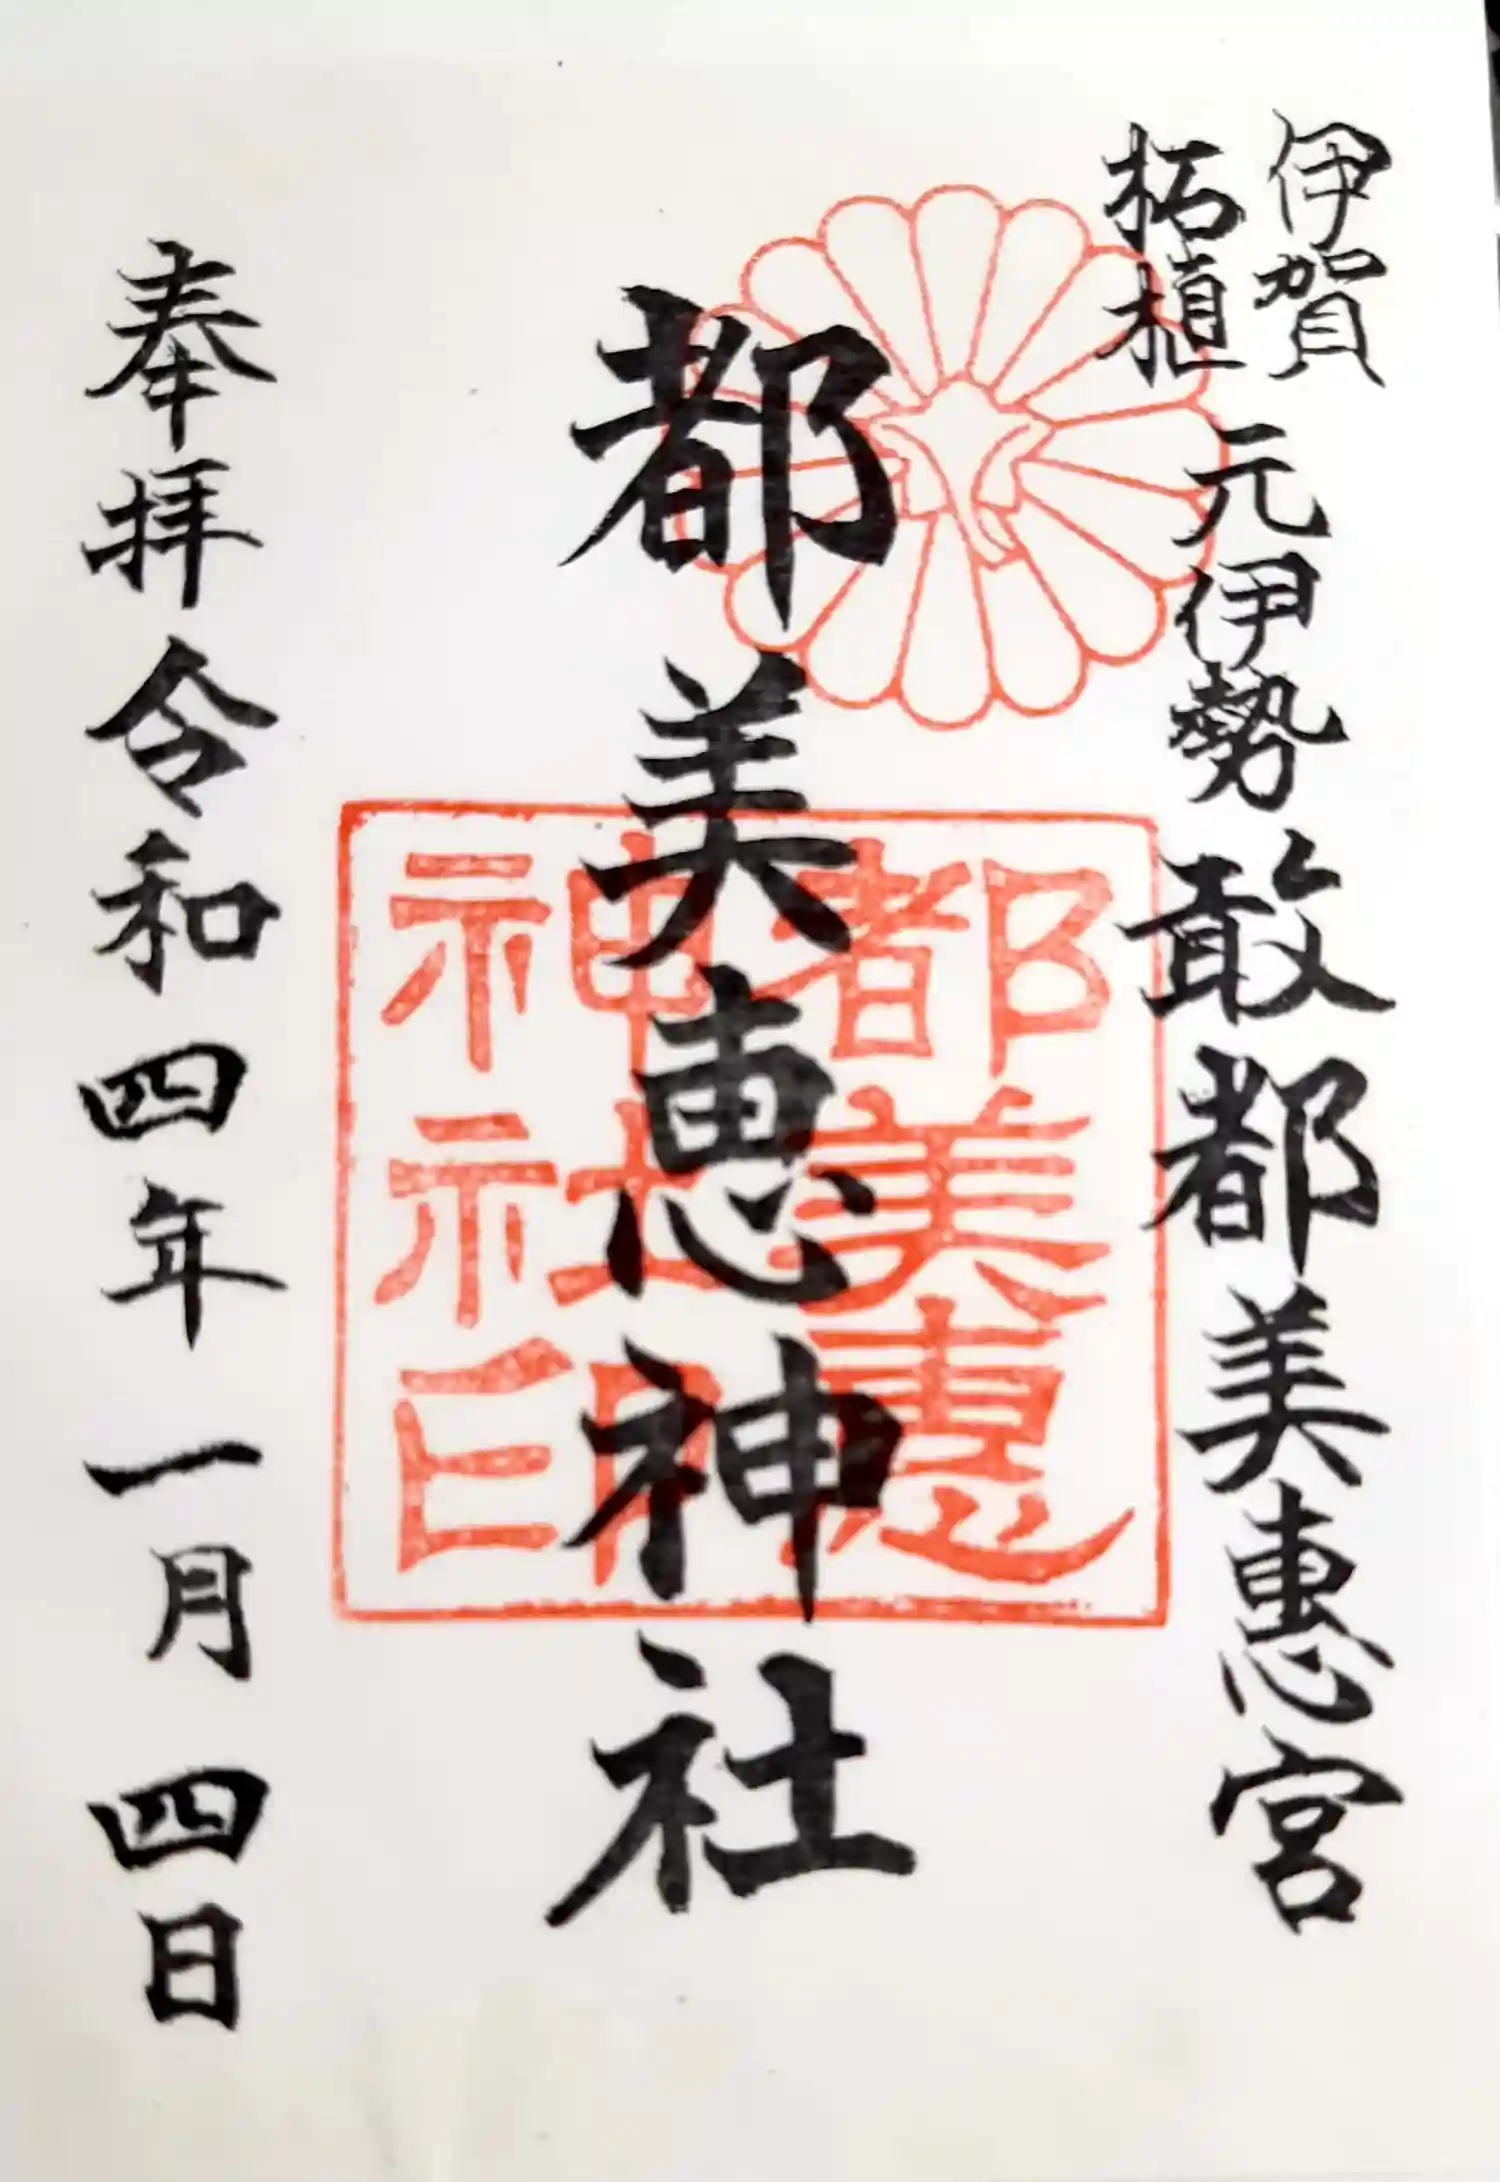 伊賀
柘植
元伊勢 敢都美恵宮
都美恵神社
都美恵
神社印
奉拝 令和四年一月四日